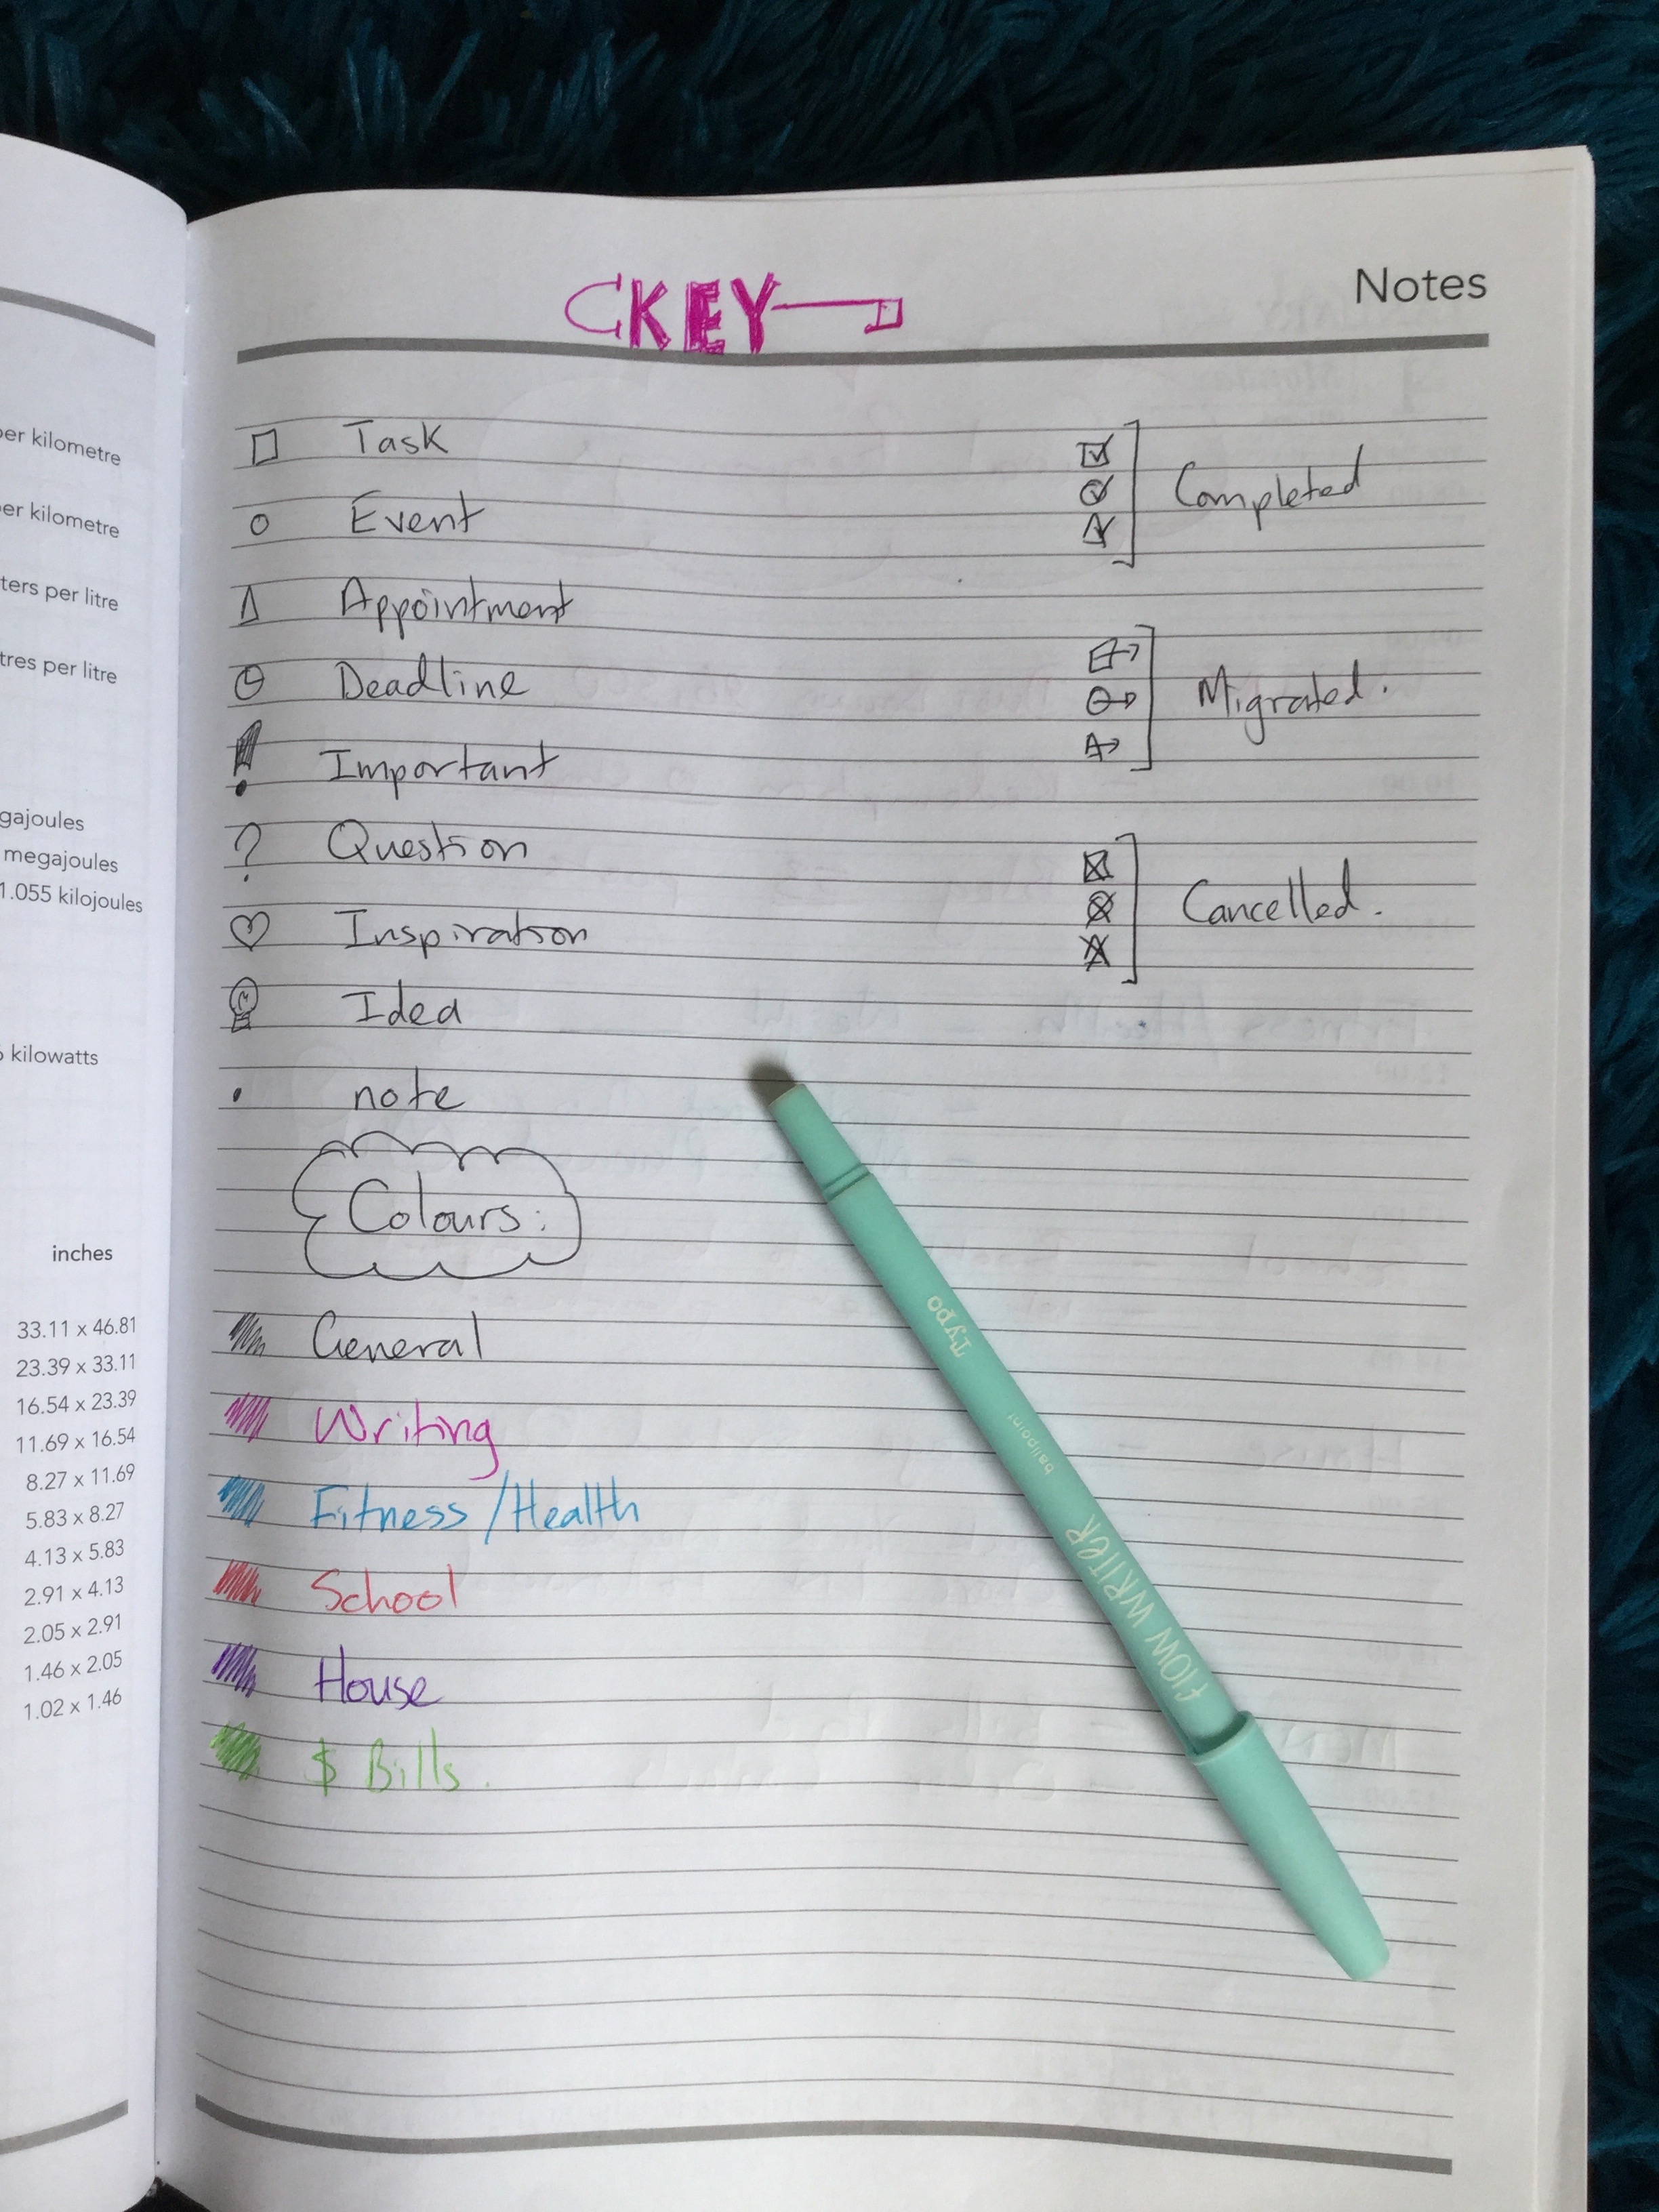 per kilometre
er kilometre
ters per litre
tres per litre
gajoules
megajoules
1.055 kilojoules
kilowatts
inches
33.11 x 46.81
23.39 x 33.11
16.54 x 23.39
11.69 x 16.54
8.27 x 11.69
5.83 x 8.27
4.13 x 5.83
2.91 x 4.13
2.05 x 2.91
1.46 x 2.05
1.02 x 1.46
KEY
Notes
Task
Event
Appointment
Deadline
! Important
? Question
Inspiration
Idea
• note
Completed
Migrated.
Cancelled.
Colours:
General
Writing
Fitness/Health
School
House
$ Bills.
Typo
ballpoint
flow writer